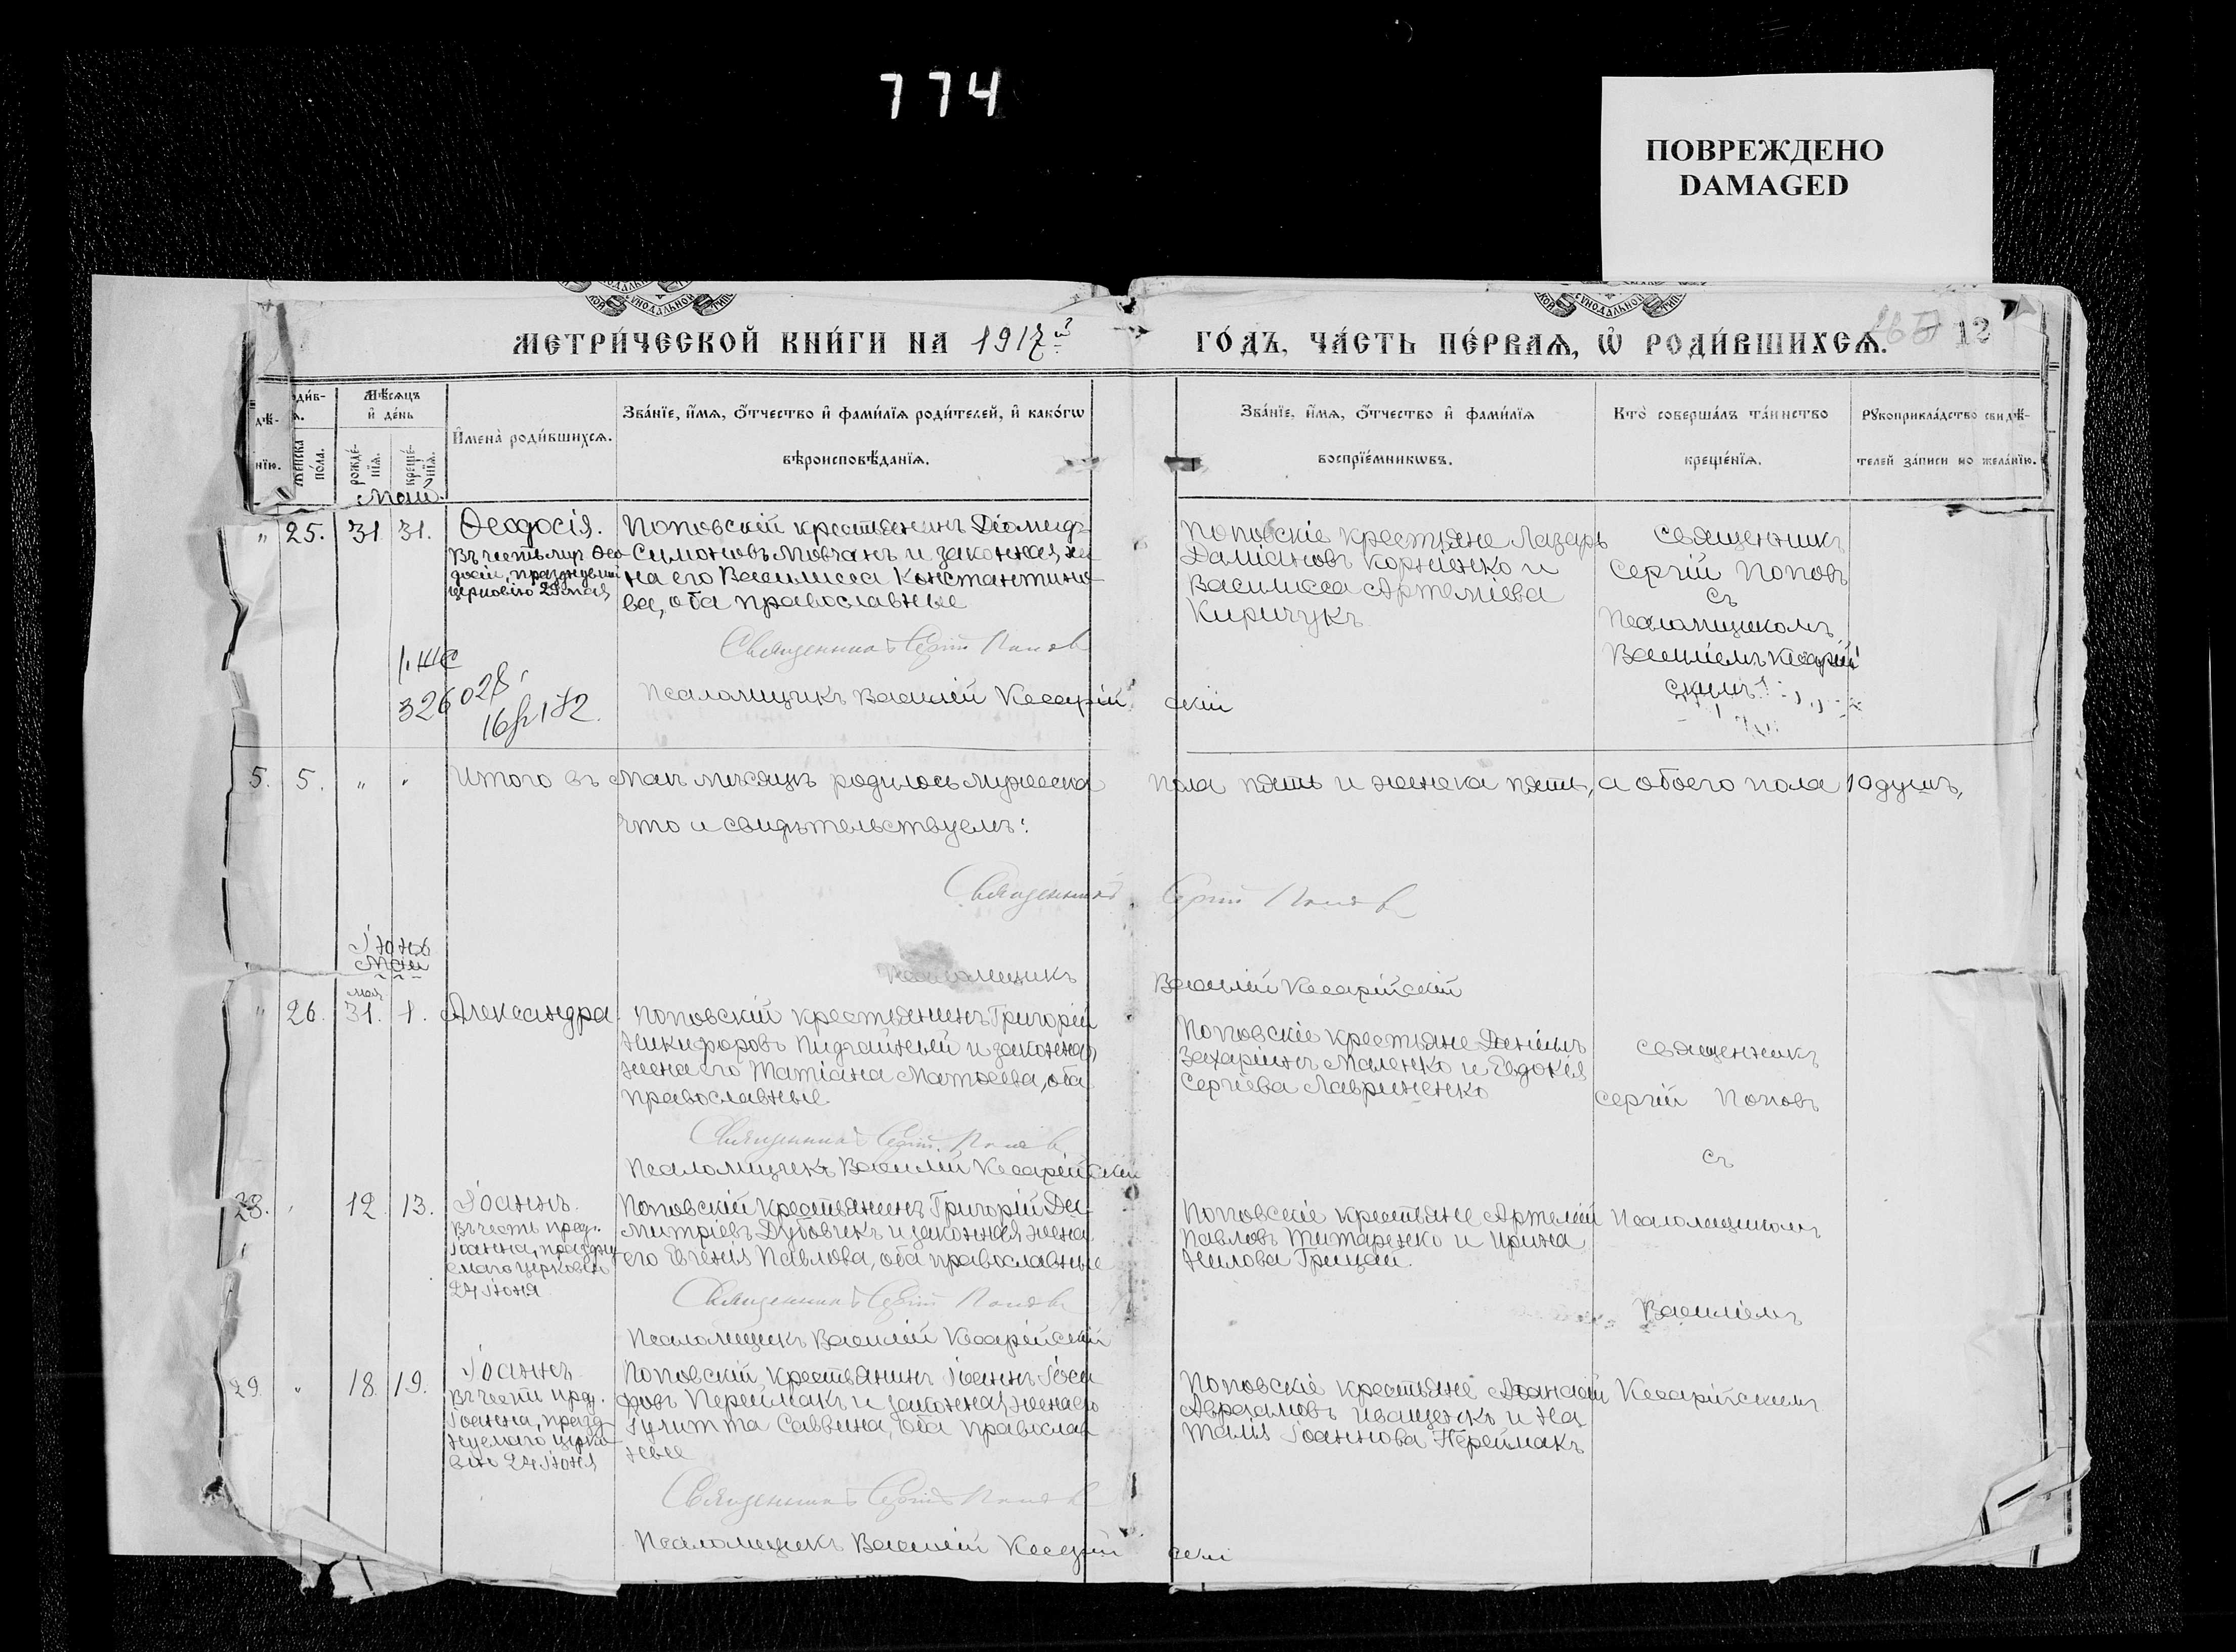 774
ПОВРЕЖДЕНО
DAMAGED
МЕТРИ́ЧЕСКОЙ КНИ́ГИ НА 1917й
ГО́ДЪ, ЧА́СТЬ ПЕ́РВАЯ, Ѡ҆ РОДИ́ВШИХСЯ.
12
Мѣ́сяцъ
и҆ де́нь
Женска
по́ла.
рожде́-
нїя.
креще́-
нїя.
И҆мена̀ роди́вшихся.
Зва́нїе, и҆́мя, ѻ҆́тчество и҆ фами́лїя роди́телей, и҆ како́гѡ
вѣроисповѣ́данїя.
Зва́нїе, и҆́мя, ѻ҆́тчество и҆ фами́лїя
воспрїе́мникѡвъ.
Кто̀ соверша́лъ та́инство
креще́нїя.
Рꙋкоприкла́дство свидѣ́-
телей за́писи по жела́нїю.
Май
" 25. 31. 31.
Ѳеодосія.
Въ честь муч. Ѳео
досіи, празднуемой
церковію 29 мая
Поповскій крестьянинъ Діомидъ
Симоновъ Мовчанъ и законная же
на его Василисса Константино
ва, оба православные
Священникъ Сергій Поповъ
Псаломщикъ Василій Кесарій
скій
Поповскіе крестьяне Лазарь
Даміановъ Корніенко и
Василисса Артеміева
Киричукъ
Священникъ
Сергій Поповъ
съ
Псаломщикомъ
Василіемъ Кесарій
скимъ
326028
5. 5. " "
Итого въ Маѣ мѣсяцѣ родилось мужеска пола пять и женска пять, а обоего пола 10 душъ,
что и свидѣтельствуемъ:
Священникъ Сергій Поповъ
Псаломщикъ Василій Кесарійскій
Іюнь
Май
мая
" 26. 31. 1.
Александра
Поповскій крестьянинъ Григорій
Никифоровъ Пидгайный и законная
жена его Татіана Матѳеева, оба
православные
Священникъ Сергій Поповъ
Псаломщикъ Василій Кесарійскій
Поповскіе крестьяне Даніилъ
Захаріинъ Маленко и Евдокія
Сергіева Лавриненко
Священникъ
Сергій Поповъ
съ
28. " 12. 13.
Іоаннъ.
Въ честь пред.
Іоанна, праздну
емаго церковію
24 Іюня
Поповскій крестьянинъ Григорій Ди
митріевъ Дубовикъ и законная жена
его Евгенія Павлова, оба православные
Священникъ Сергій Поповъ
Псаломщикъ Василій Кесарійскій
Поповскіе крестьяне Артемій
Павловъ Титаренко и Ирина
Нилова Грицай.
Псаломщикомъ
Василіемъ
29. " 18. 19.
Іоаннъ
Въ честь пред.
Іоанна, празд
нуемаго церко
вію 24 Іюня
Поповскій крестьянинъ Іоаннъ Іоси
фовъ Переймакъ и законная жена его
Іулитта Саввина, оба православ
ные
Священникъ Сергій Поповъ
Псаломщикъ Василій Кесарій
скій
Поповскіе крестьяне Аѳанасій
Авраамовъ Иващенко и На
талія Іоаннова Переймакъ
Кесарійскимъ